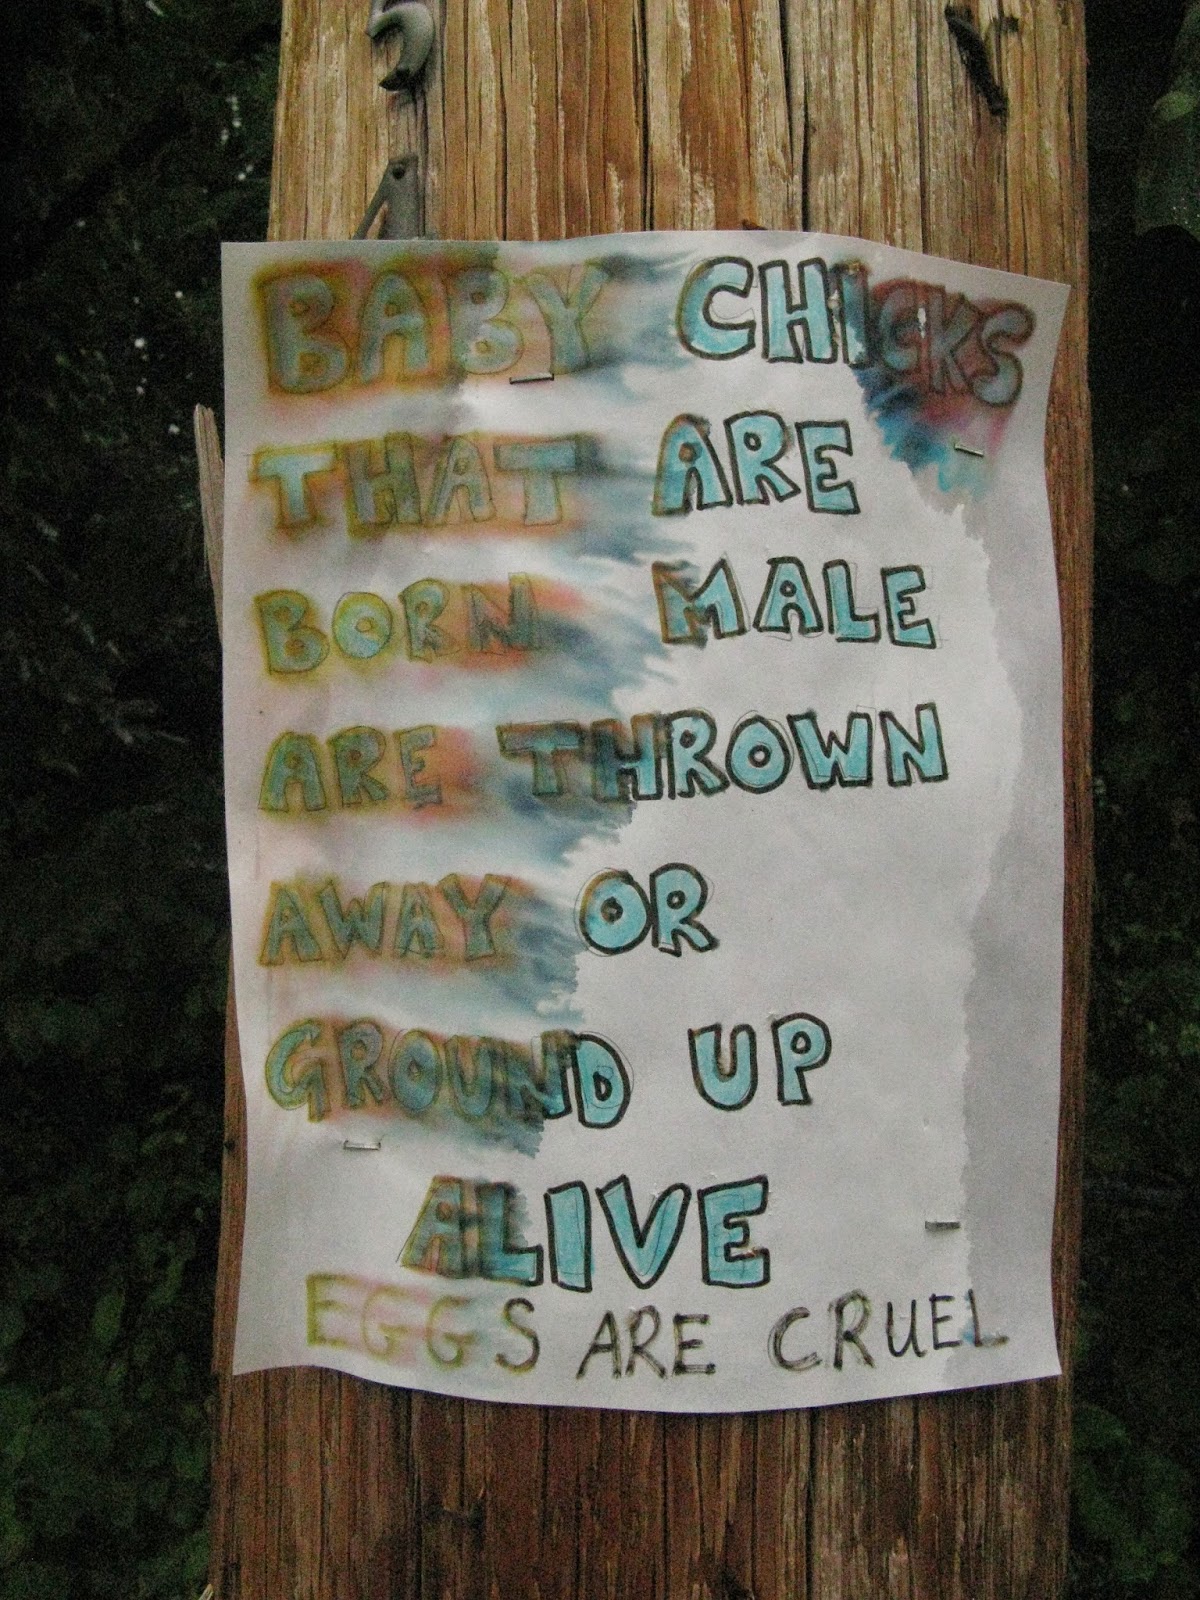 5
BABY CHICKS
THAT ARE
BORN MALE
ARE THROWN
AWAY OR
GROUND UP
ALIVE
EGGS ARE CRUEL